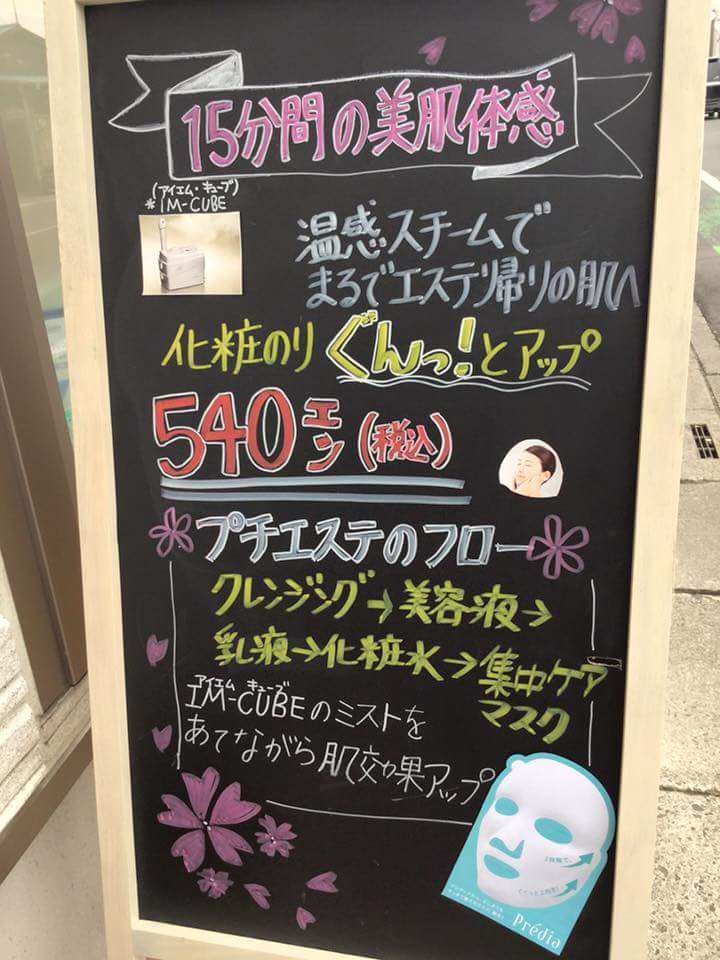 15分間の美肌体感
(アイエム・キューブ)
*IM-CUBE
温感スチームで
まるでエステ帰りの肌へ
化粧のり ぐんっ!とアップ
540エン(税込)
プチエステのフロー
クレンジング→美容液→
乳液→化粧水→集中ケア
マスク
アイエム キューブ
IM-CUBEのミストを
あてながら肌効果アップ
Prédia